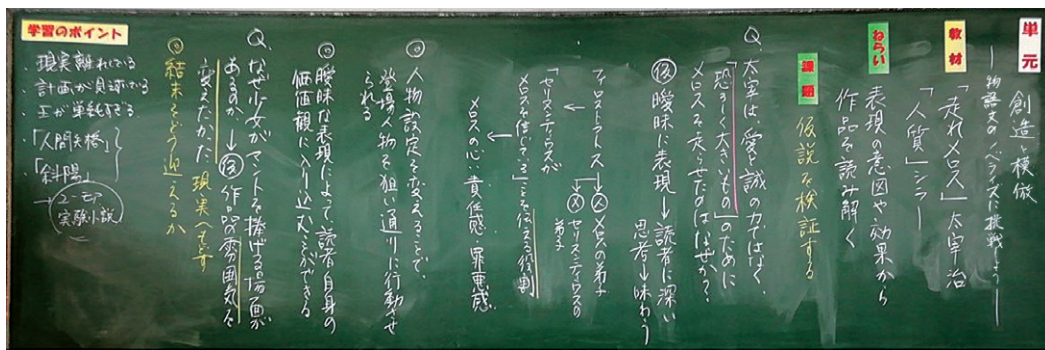 単元
創造と模倣
―物語文のパラフレーズに挑戦しよう―
教材
「走れメロス」太宰治
「人質」シラー
ねらい
表現の意図や効果から
作品を読み解く
課題
仮説を検証する
Q.太宰は、愛と誠の力ではなく、
「恐ろしく大きいもの」のために
メロスを走らせたのはなぜか?
仮 曖昧に表現→読者に深い
思考→味わう
フィロストラトス
メロスの弟子
セリヌンティウスの
弟子
「セリヌンティウスが
メロスを信じている」ことを伝える役割
メロスの心:責任感・罪悪感
◎人物設定を変えることで、
登場人物を狙い通りに行動させ
られる
◎曖昧な表現によって、読者自身の
価値観に入り込むことができる
Q.なぜ少女がマントを捧げる場面が
あるのか→仮 作品の雰囲気を
変えたかった 現実へもどす
◎結末をどう迎えるか
学習のポイント
現実離れしている
・計画が見透けている
・王が単純すぎる
・「人間失格」
「斜陽」
→ユーモア
実験小説